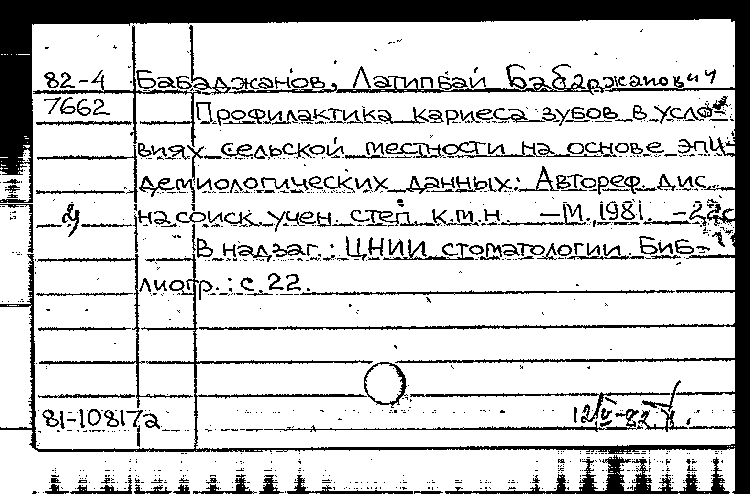 82-4 Бабаджанов, Латипбай Бабаржанович
7662 Профилактика кариеса зубов в усло-
виях сельской местности на основе эпи-
демиологических данных: Автореф дис.
на соиск. учен. степ. к.м.н. —М., 1981. -22с
В надзаг.: ЦНИИ стоматологии. Биб-
лиогр.: с.22.
81-10817а 12/V-82